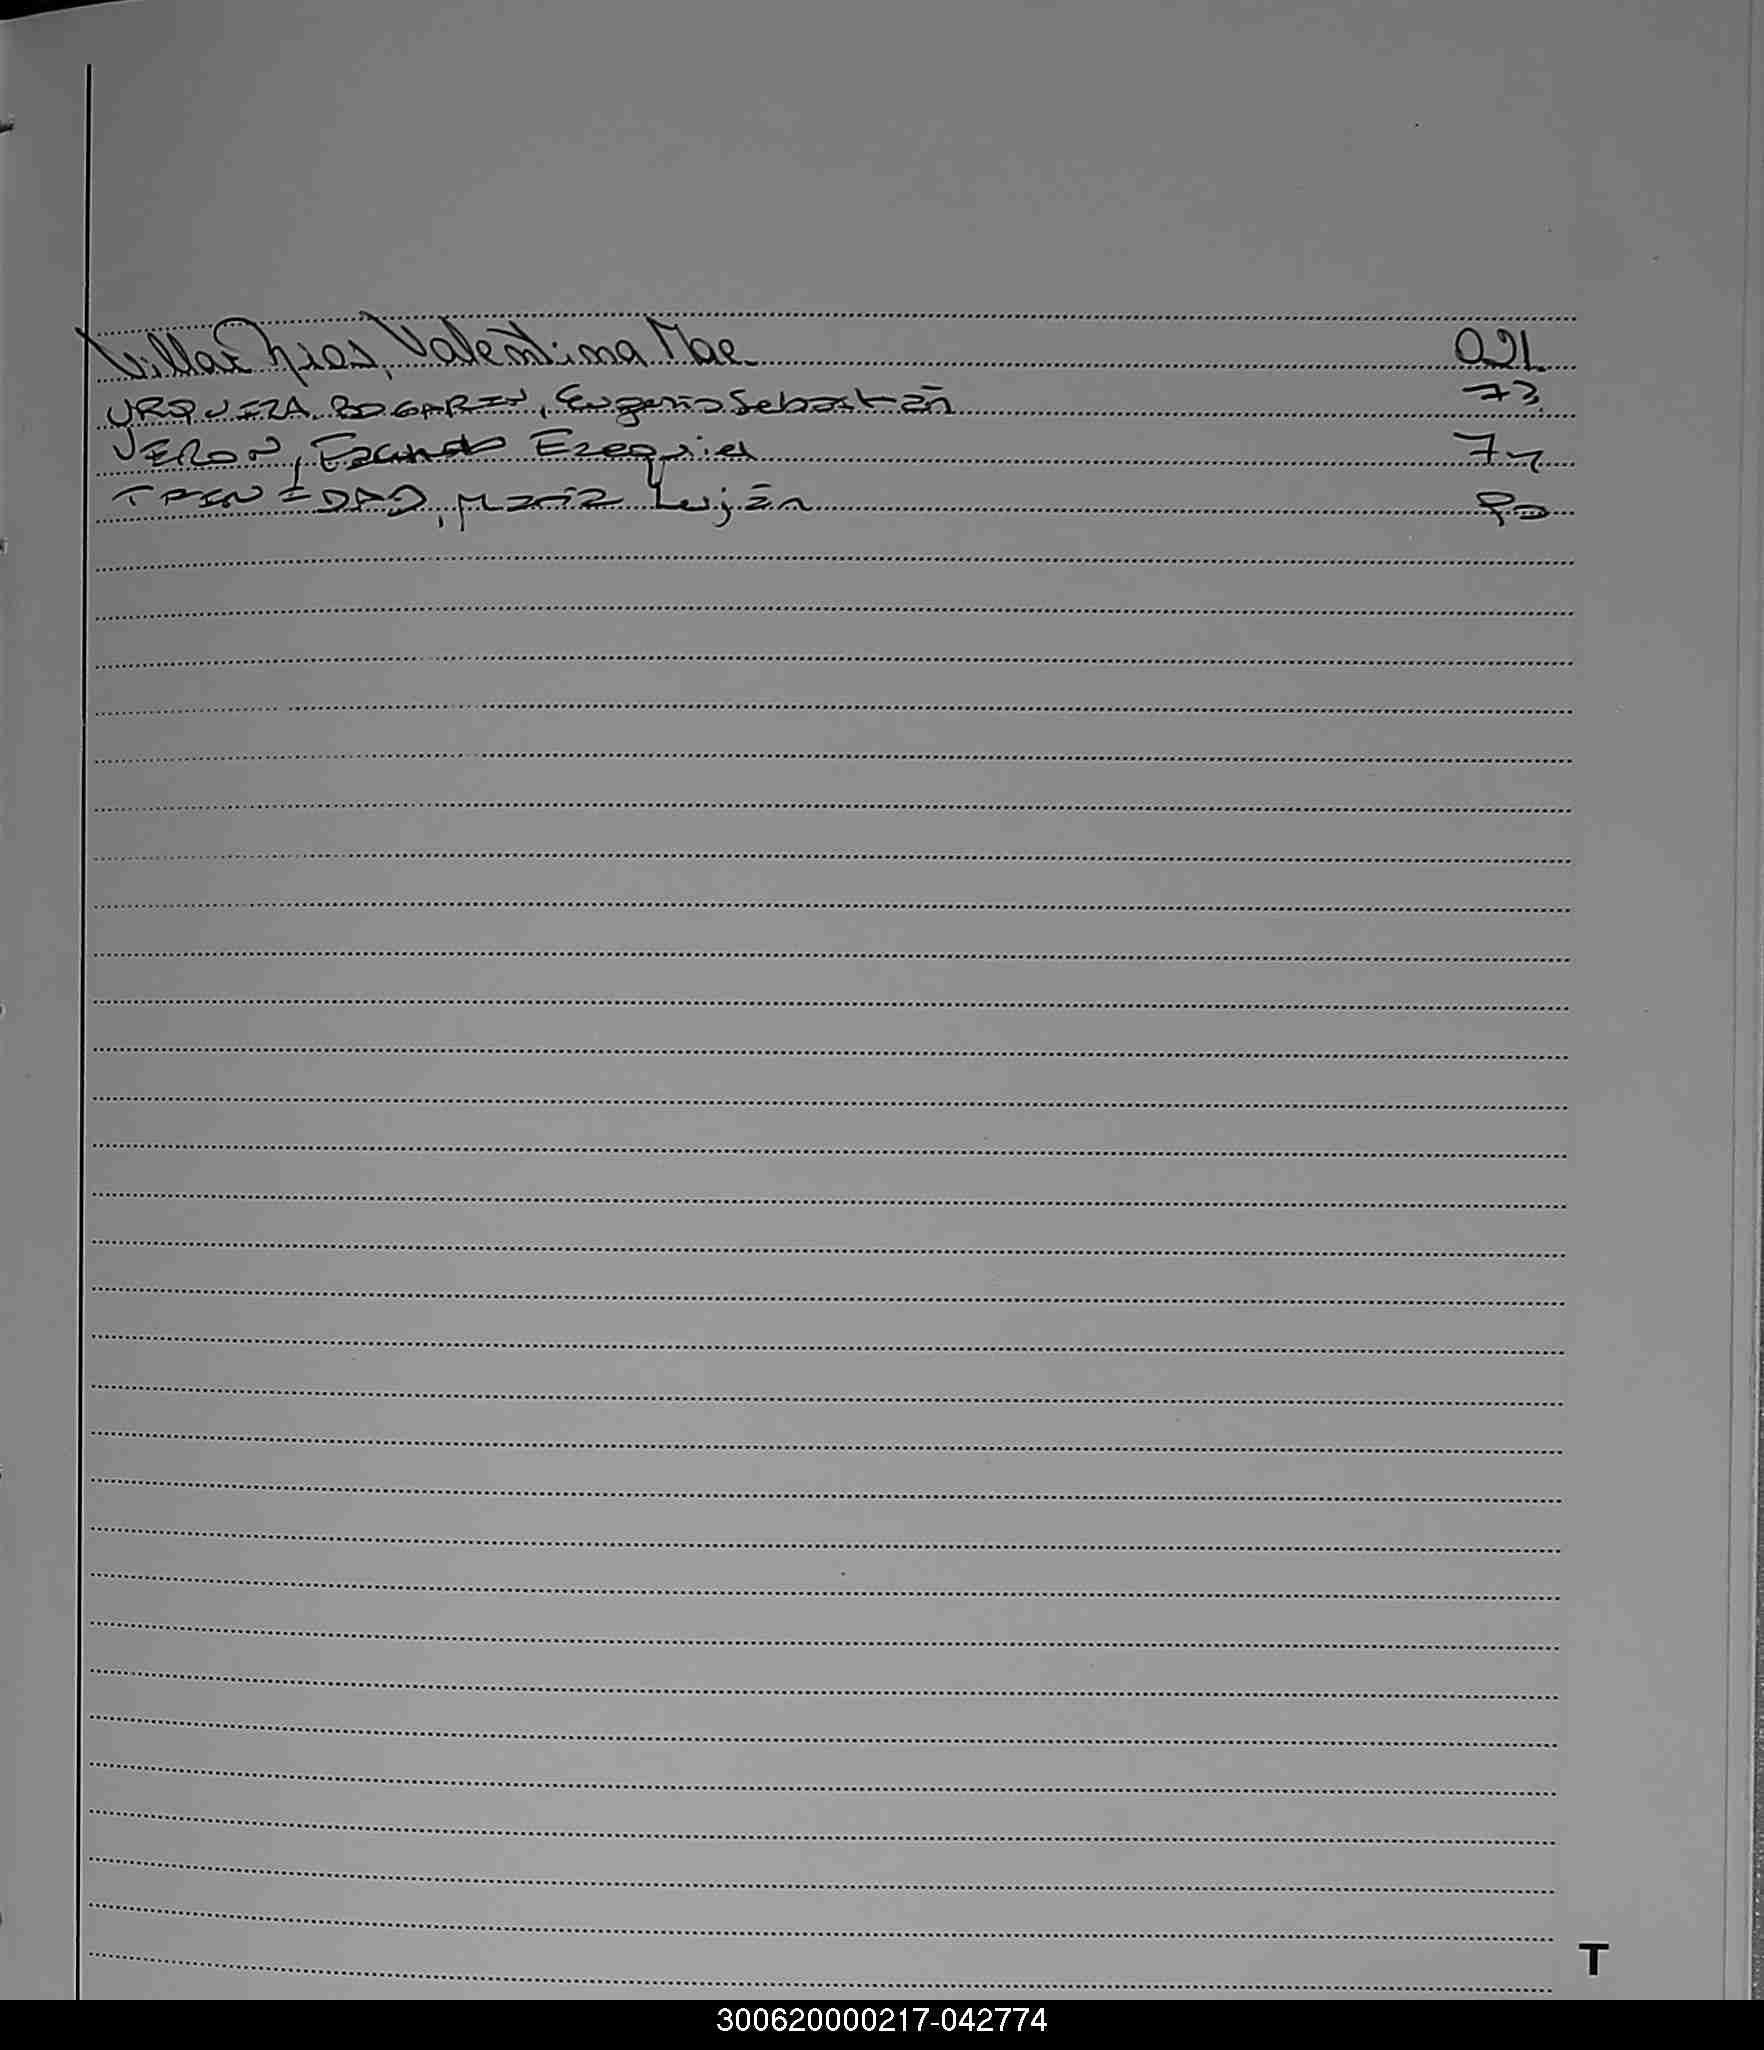 Villar Rios, Valentina Mae 021
URQUIZA BOGARIN, Eugenio Sebastián 73
VERON, Facundo Ezequiel 74
TRINIDAD, María Luján 80
T
300620000217-042774